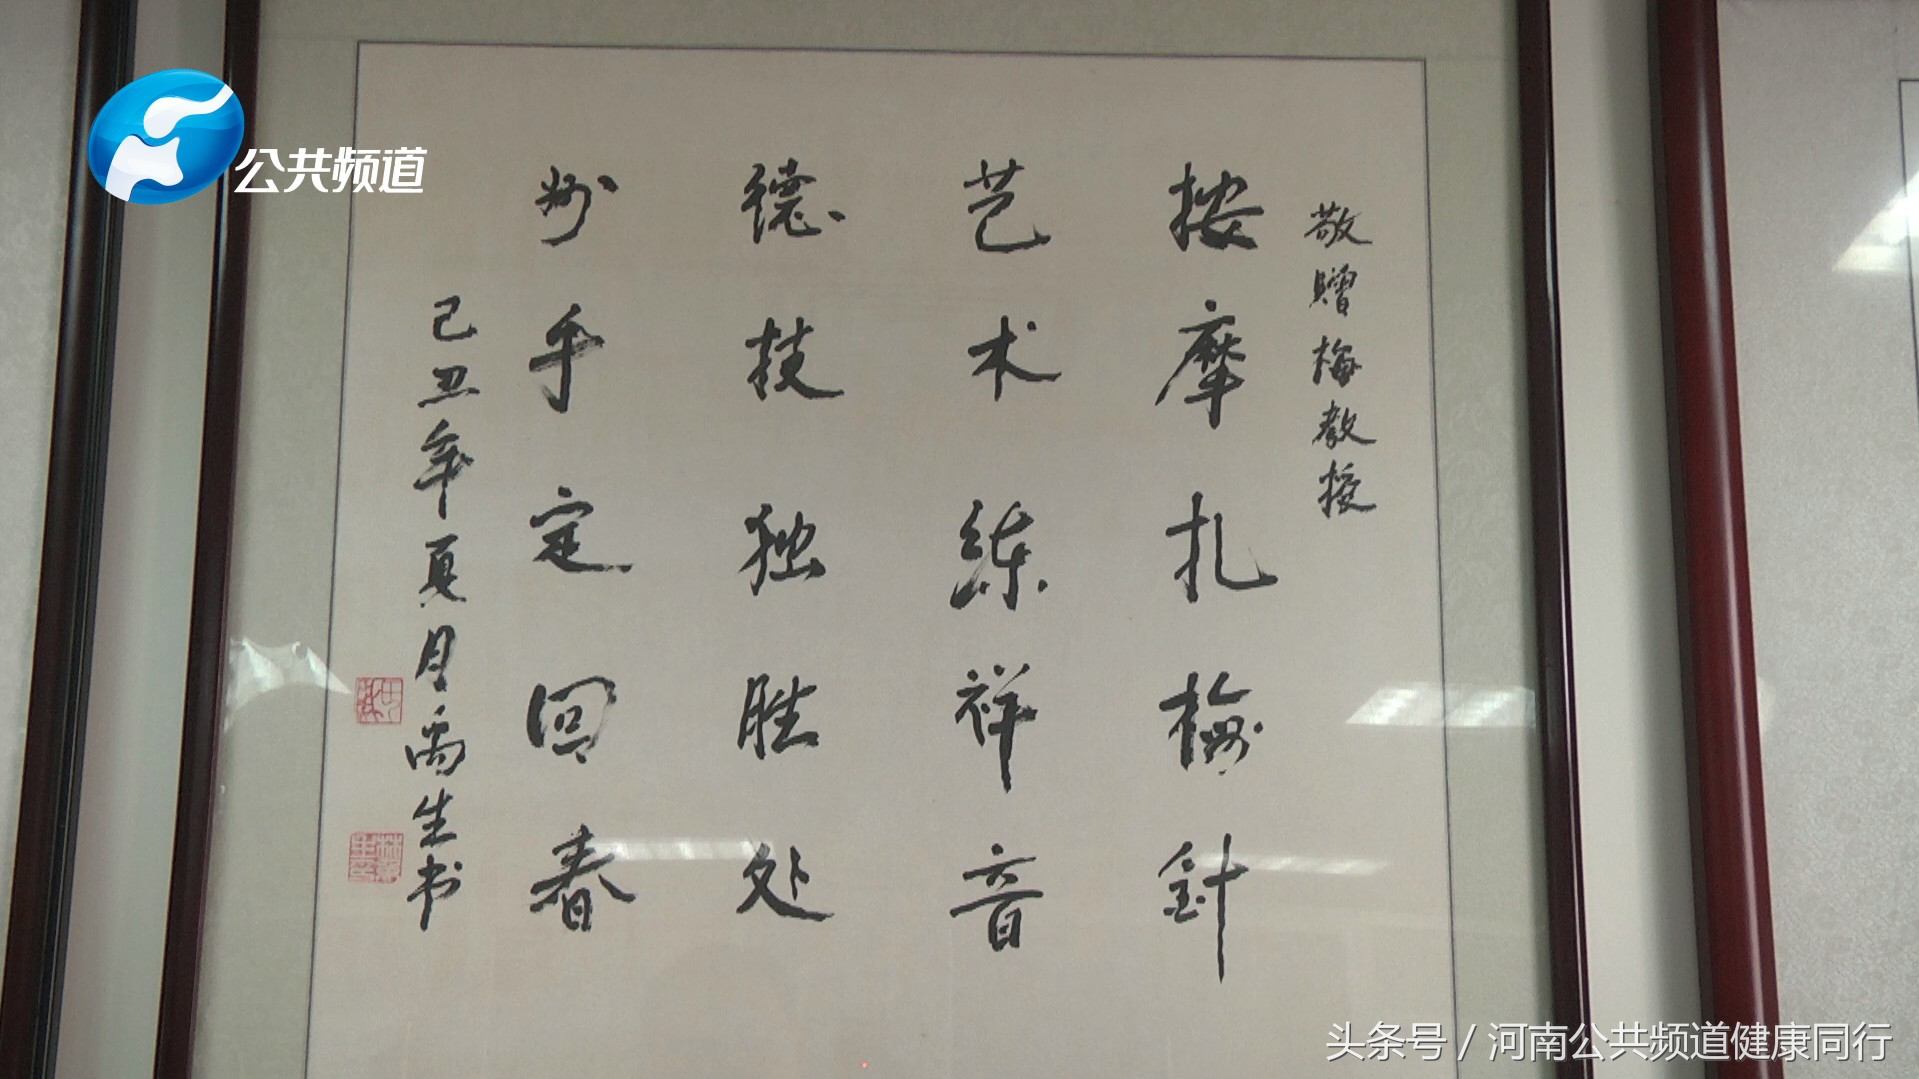 公共频道
敬赠梅教授
按摩扎梅针
艺术练祥音
德技独胜处
妙手定回春
己丑年夏月 禹生书
头条号 / 河南公共频道健康同行